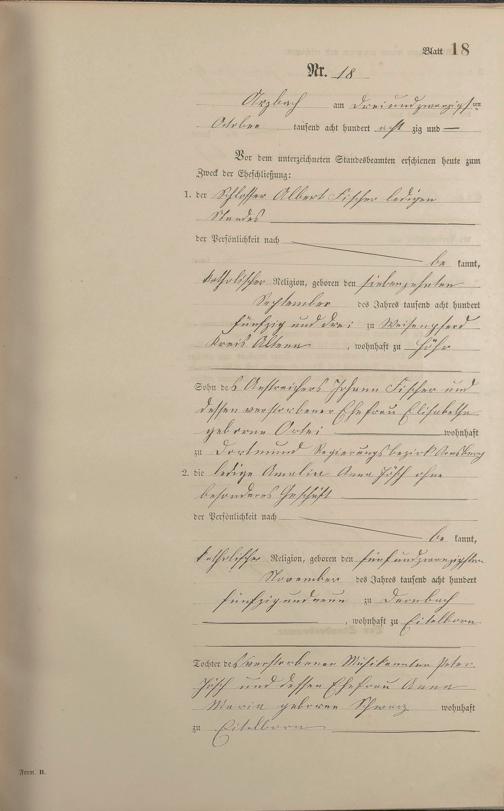 Blatt 18
Nr. 18
Arzbach am dreiundzwanzigsten
Oktober tausend acht hundert acht zig und —
Vor dem unterzeichneten Standesbeamten erschienen heute zum
Zweck der Eheschließung:
1. der Schlosser Albert Fischer ledigen
Standes
der Persönlichkeit nach
be kannt,
katholischer Religion, geboren den siebenzehnten
September des Jahres tausend acht hundert
fünfzig und drei zu
Kreis Altena, wohnhaft zu Höhr
Sohn des Anstreichers Johann Fischer und
dessen verstorbener Ehefrau Elisabetha
geborne wohnhaft
zu Dortmund Regierungsbezirk Arnsberg
2. die ledige Amalia Anna Jösch ohne
besonderes Geschäft
der Persönlichkeit nach
be kannt,
katholischer Religion, geboren den fünfundzwanzigsten
November des Jahres tausend acht hundert
fünfzig und neun zu Dernbach
, wohnhaft zu Eitelborn
Tochter des verstorbenen Musikanten Peter
Jösch und dessen Ehefrau Anna
Maria geborne Schwarz wohnhaft
zu Eitelborn
Form. B.